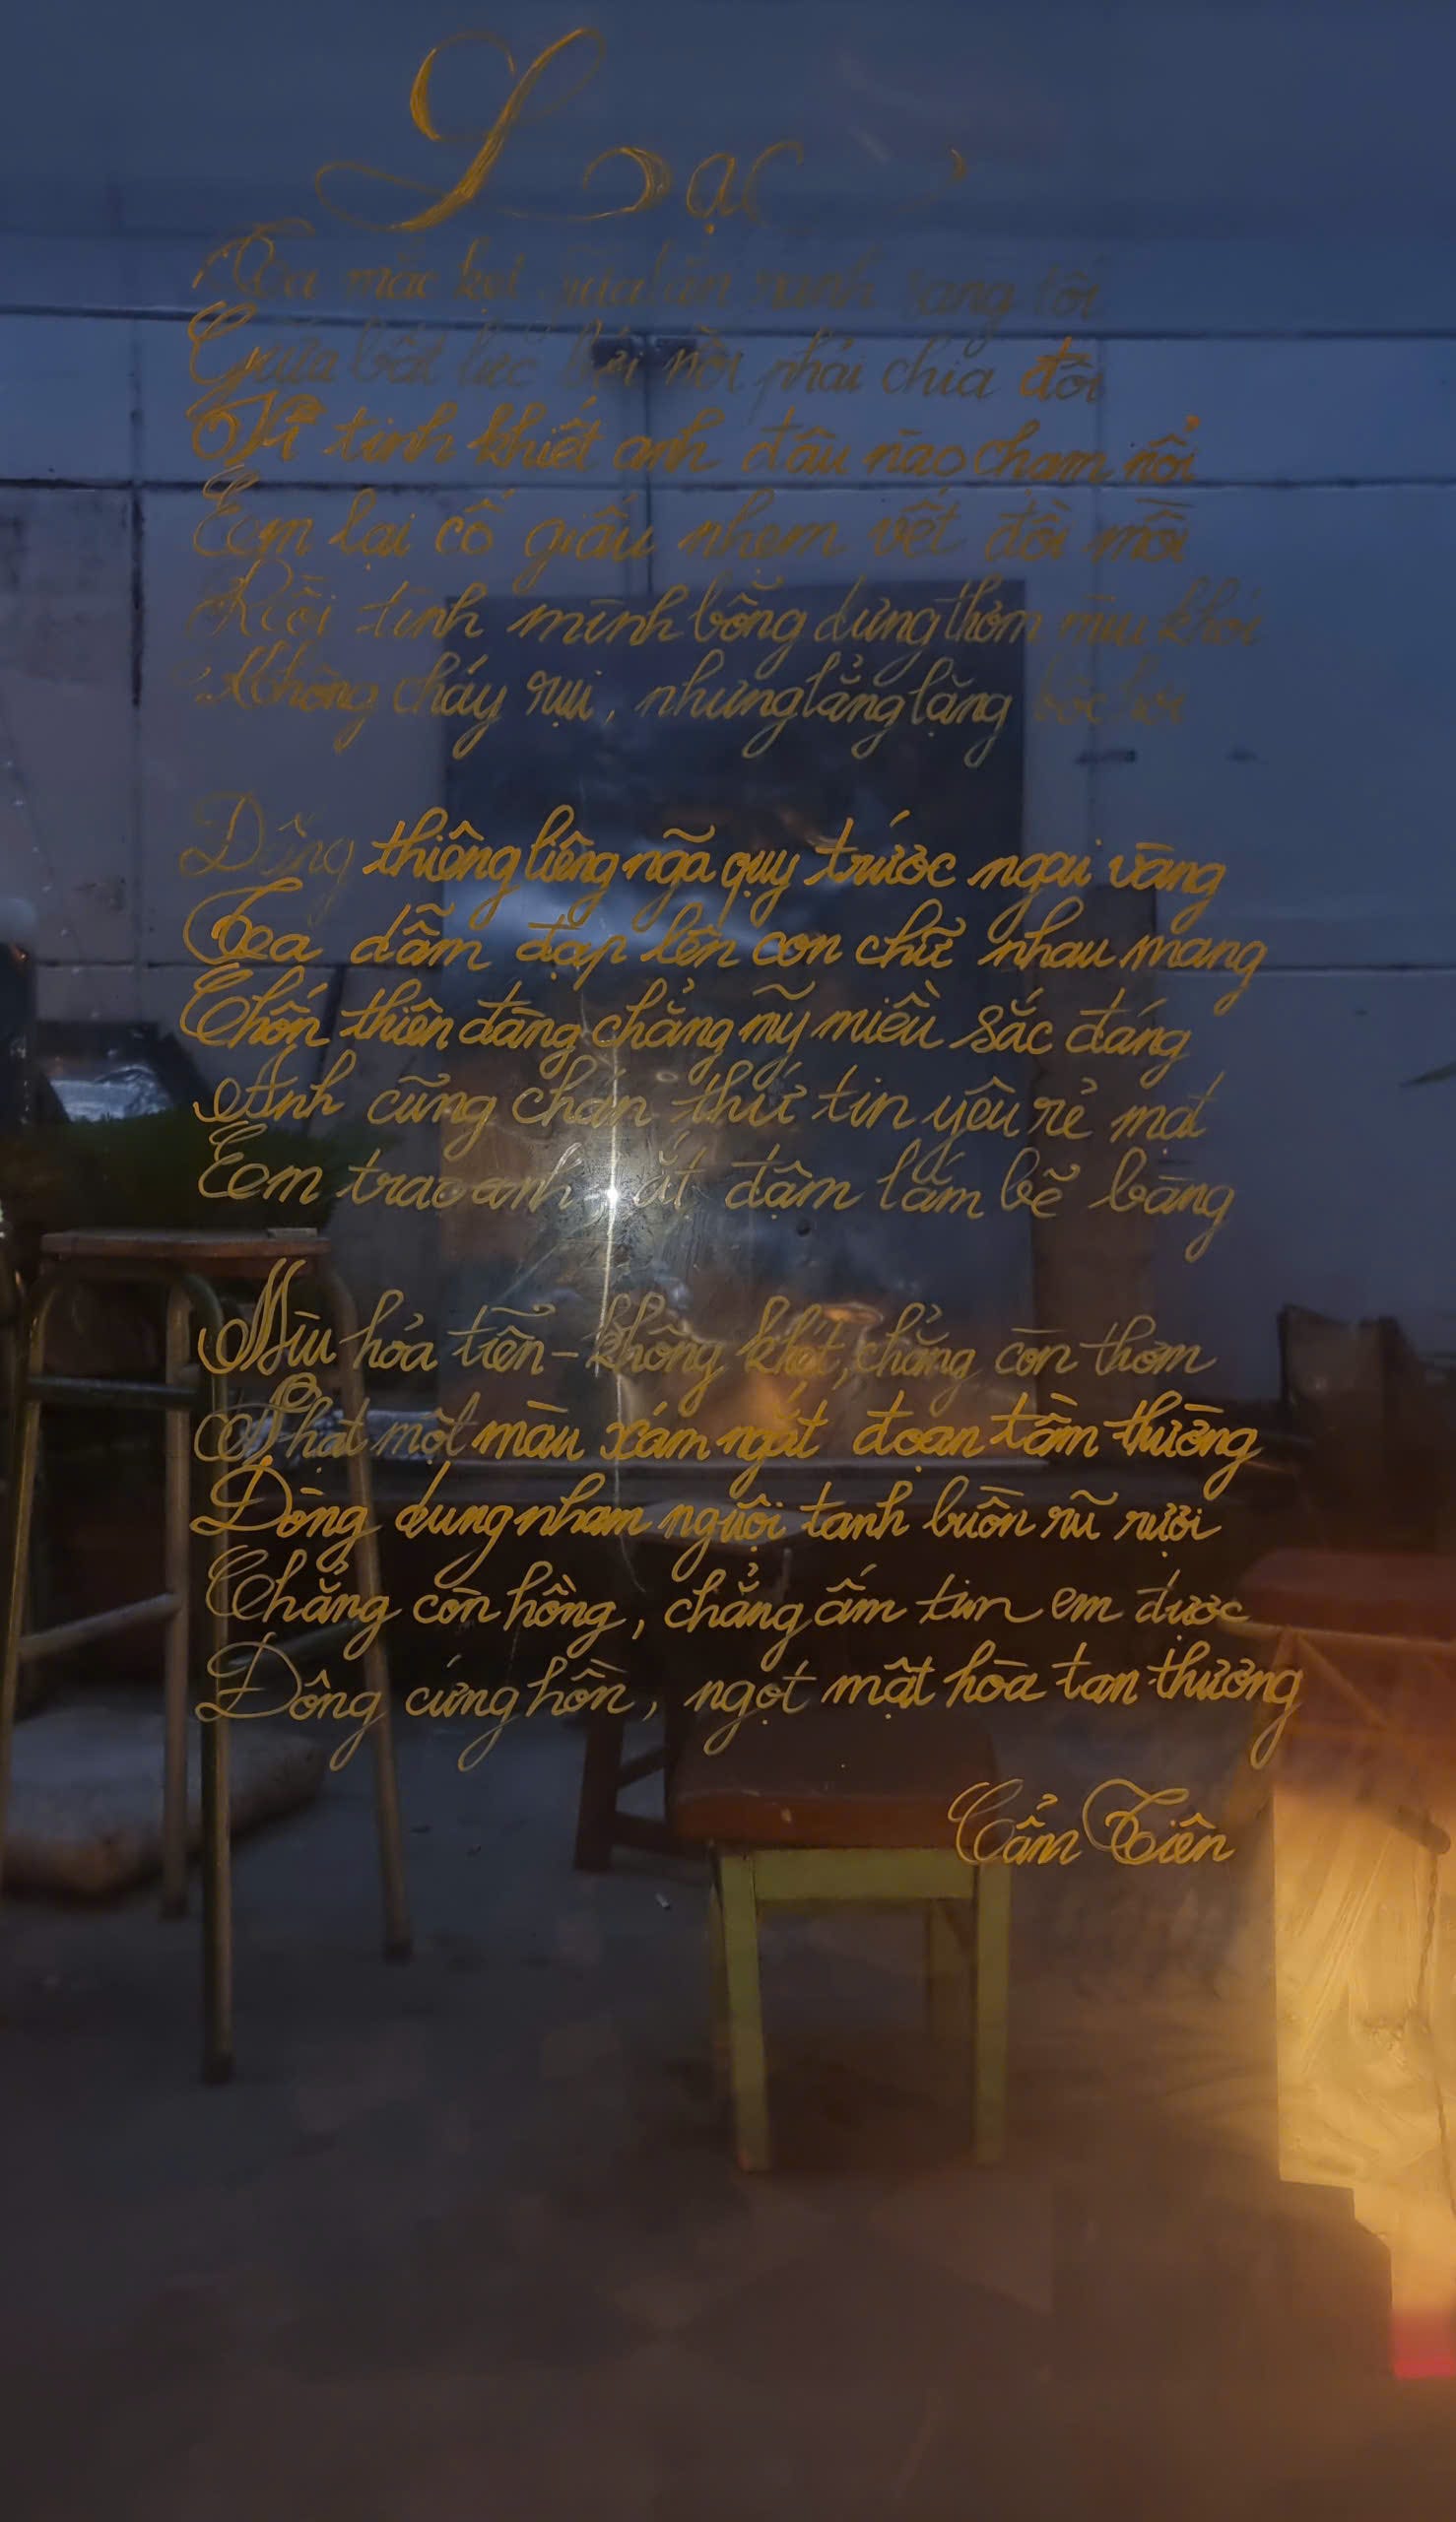 Lạc
Ta mắc kẹt giữa lằn ranh sáng tối
Giữa bất lực bởi nỗi phải chia đôi
Vì tinh khiết anh đâu nào chạm nổi
Em lại cố giấu nhẹm vết đồi mồi
Rồi tình mình bỗng dưng thơm mùi khói
Không cháy rụi, nhưng lẳng lặng bốc hơi
Đống thiêng liêng ngã quỵ trước ngai vàng
Ta dẫm đạp lên con chữ nhau mang
Chốn thiên đàng chẳng mỹ miều sắc đáng
Anh cũng chán thứ tin yêu rẻ mạt
Em trao anh, đậm lắm bẽ bàng
Mùi hỏa tiễn - không khét, chẳng còn thơm
Phạt một màu xám ngắt đoạn tầm thường
Dòng dung nham nguội tanh buồn rũ rượi
Chẳng còn hồng, chẳng ấm tim em được
Đông cứng hồn, ngọt mật hòa tan thương
Cẩm Tiên